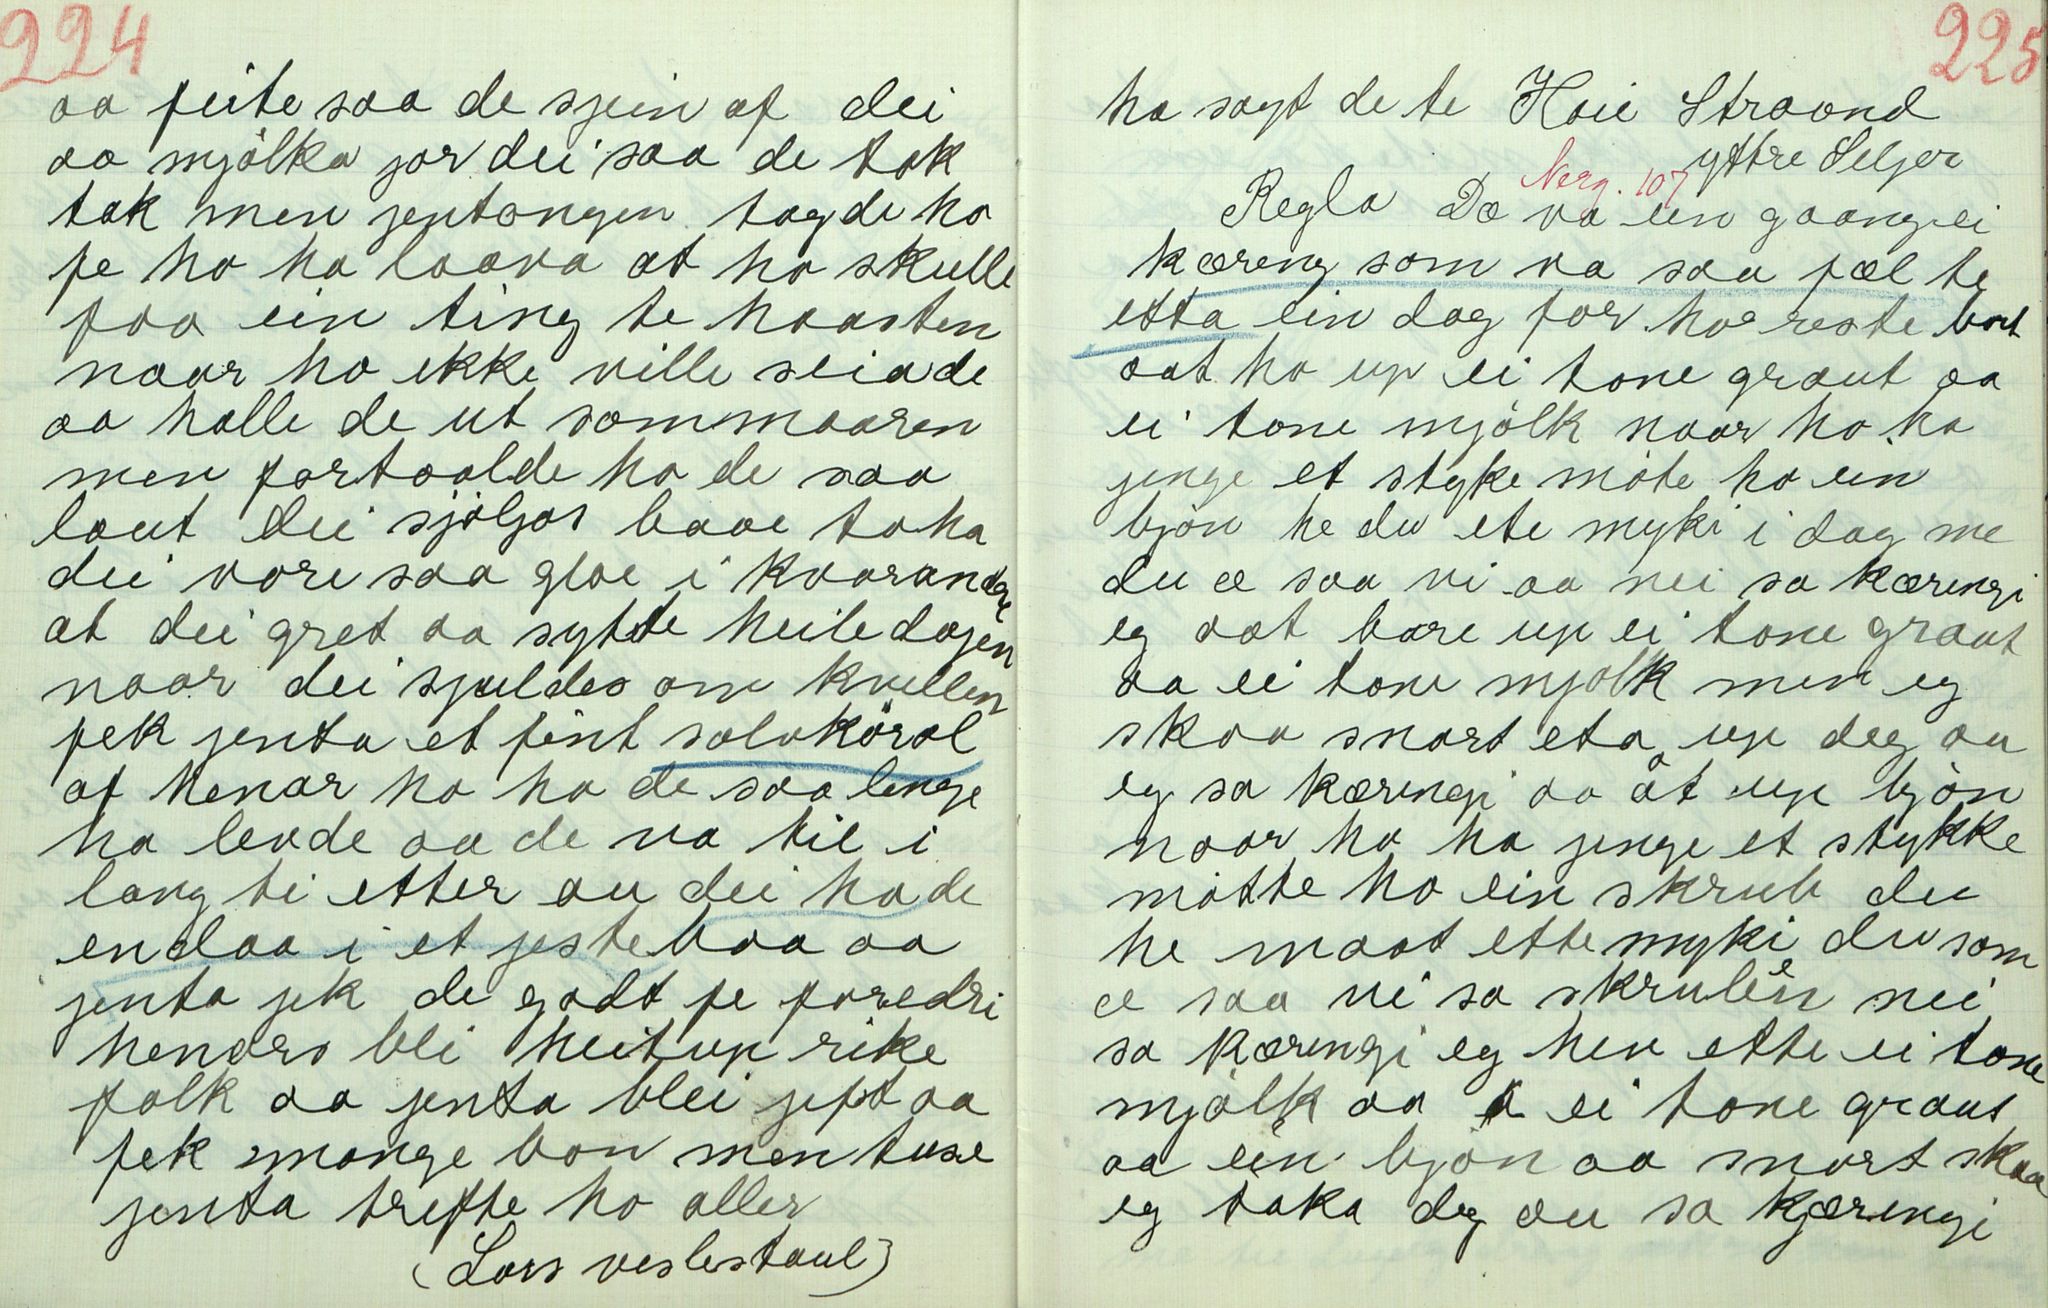 224
aa feite saa de sjein af dei
aa mjólka jor dei saa de tok
tak men jentongen tagde ho
fe ho ha laava at ho skulle
faa ein ting te haasten
naar ho ekke ville seia de
aa halle de ut sommaaren
men fortaalde ho de saa
laut dei sjöljas baae to ha
dei vore saa glae i kvarandre
at dei gret aa sytte heile dagjen
naar dei sjuldes om kvellen
fek jenta et fint sölvköral
af henar ho ha de saa lenge
ho levde aa de va til i
lang ti etter au dei ha de
endaa i et jestebaa aa
jenta jek de godt fe foredri
hendars blei heit up rike
folk aa jenta blei jift aa
fek mange bon men tuse
jenta trefte ho aller
(Lars veslestaul)
225
ha sagt de te Haie Straand
yttre Seljor
Nerg. 107
Regla Dæ va ein gaang ei
kæreng som va saa fæl te
etta ein dag for ho reste bort
aat ho up ei tone graut aa
ei tone mjólk naar ho ha
jenge et styke móte ho ein
bjón he du ete myki i dag me
du æ saa vi aa nei sa kæringi
eg aat bare up ei tone graut
aa ei tone mjólk men eg
skaa snart eta up deg au
eg sa kæringi aa åt up bjón
naar ho ha jenge et stykke
mótte ho ein skrub du
he maat ette myki du som
æ saa vi sa skruben nei
sa kæringi eg hev ette ei tone
mjólk aa ei tone graut
aa ein bjón aa snart skaa
eg taka deg au sa kjæringi